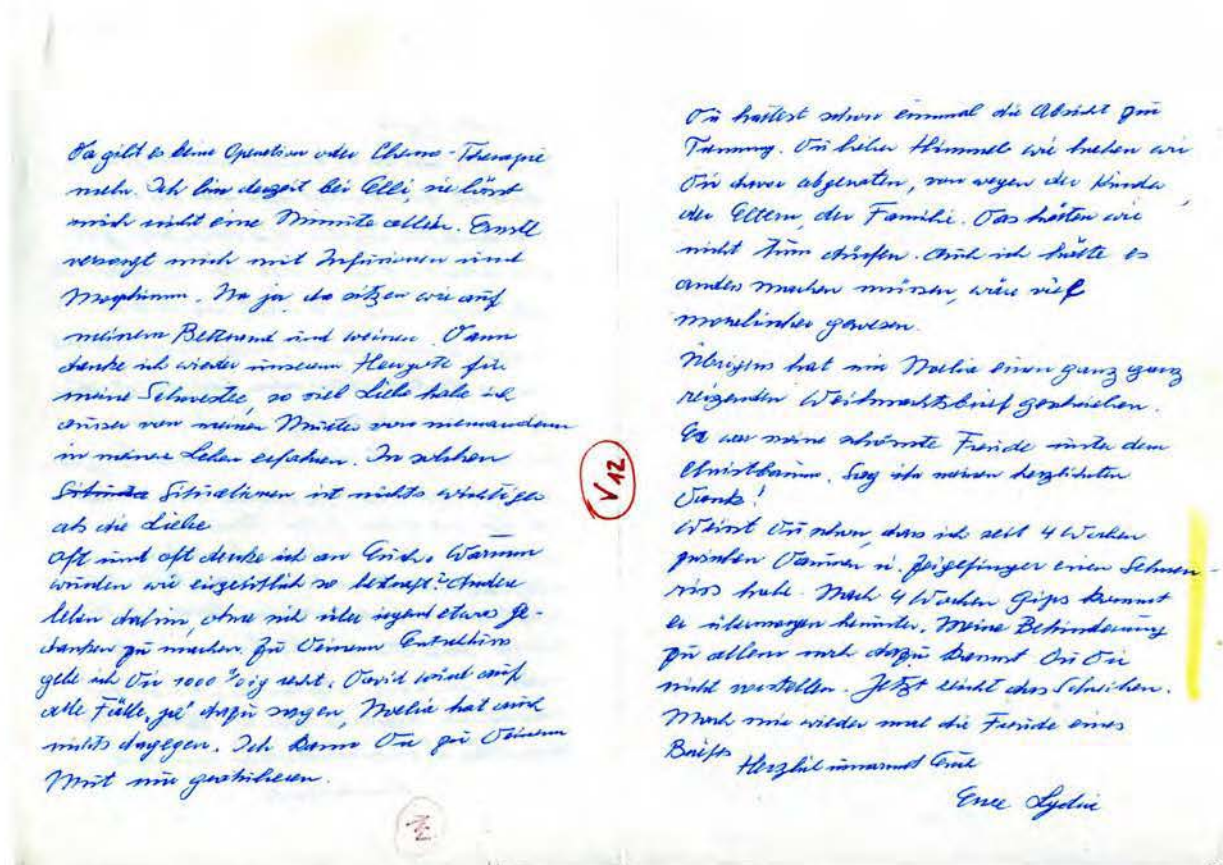 Da gibt es keine Operation oder Chemo-Therapie
mehr. Ich bin derzeit bei Elli, sie lässt
mich nicht eine Minute allein. Ernstl
versorgt mich mit Infusionen und
Morphium. Na ja, da sitzen wir auf
meinem Bettrand und weinen. Dann
danke ich wieder unserem Herrgott für
meine Schwester, so viel Liebe habe ich
ausser von meiner Mutter von niemandem
in meinem Leben erfahren. In solchen
Situationen ist nichts wichtiger
als die Liebe
Oft und oft denke ich an Euch. Warum
wurden wir eigentlich so bestraft? Andere
leben dahin, ohne sich über irgend etwas Ge-
danken zu machen. Zu Deinem Entschluss
gebe ich Dir 1000 %ig recht. David wird auf
alle Fälle "ja" dazu sagen, Noelia hat auch
nichts dagegen. Ich kann Dir zu Deinem
Mut nur gratulieren.
Du hattest schon einmal die Absicht zur
Trennung. Du lieber Himmel wie haben wir
Dir davon abgeraten, von wegen der Kinder,
der Eltern, der Familie. Das hätten wir
nicht tun dürfen. Auch ich hätte es
anders machen müssen, wäre viel
moralischer gewesen.
Übrigens hat mir Noelia einen ganz ganz
reizenden Weihnachtsbrief geschrieben.
Es war meine schönste Freude unter dem
Christbaum. Sag ihr meinen herzlichsten
Dank!
Weisst Du schon, dass ich seit 4 Wochen
zwischen Daumen u. Zeigefinger einen Sehnen-
riss habe. Nach 4 Wochen Gips kommt
er übermorgen herunter. Meine Behinderung
zu allem noch dazu kannst Du Dir
nicht vorstellen. Jetzt leicht das Schreiben.
Mach mir wieder mal die Freude eines
Briefes
Herzlich umarmt Euch
Eure Lydia
V12